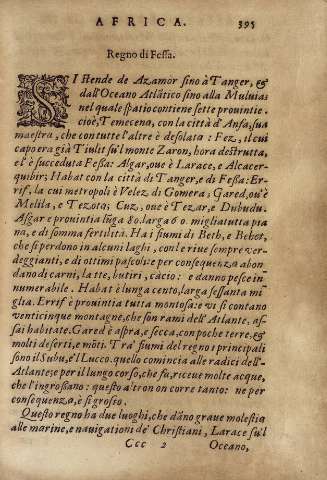 AFRICA. 395
Regno di Fessa.
SI stende de Azamor sino à Tanger, &
dall'Oceano Atlãtico sino alla Muluia:
nel quale spatio contiene sette prouintie.
cioè, Temecena, con la città d'Ansa, sua
maestra, che con tutte l'altre è desolata : Fez, il cui
capo era già Tiulit su'l monte Zaron, hora destrutta,
e l'è succeduta Fessa: Algar, oue è Larace, e Alcacer-
quibir; Habat con la città di Tanger, e di Fessa: Er-
rif, la cui metropoli è Velez di Gomera; Gared, ou'è
Melila, e Tezota; Cuz, oue è Tezar, e Dubudu.
Asgar e prouintia lũga 80. larga 60. miglia tutta pia
na, e di somma fertilità. Ha i fiumi di Beth, e Behot,
che si perdono in alcuni laghi, con le riue sempre ver-
deggianti, e di ottimi pascoli: e per consequenza abon
dano di carni, latte, butiri, cacio: e danno pesce in-
numerabile. Habat è lunga cento, larga sessanta mi-
glia. Errif è prouintia tutta montosa: e vi si contano
venticinque montagne, che son rami dell'Atlante, as-
sai habitate. Gared è aspra, e secca, con poche terre, e
molti deserti, e mõti. Tra' fiumi del regno i principali
sono il Subu, e'l Lucco. quello comincia alle radici dell'-
Atlante: e per il lungo corso, che fa, riceue molte acque,
che l'ingrossano: questo à tron on corre tanto: ne per
consequenza, è sì grosso.
Questo regno ha due luoghi, che dãno graue molestia
alle marine, e nauigationi de' Christiani, Larace su'l
Ccc 2 Oceano,